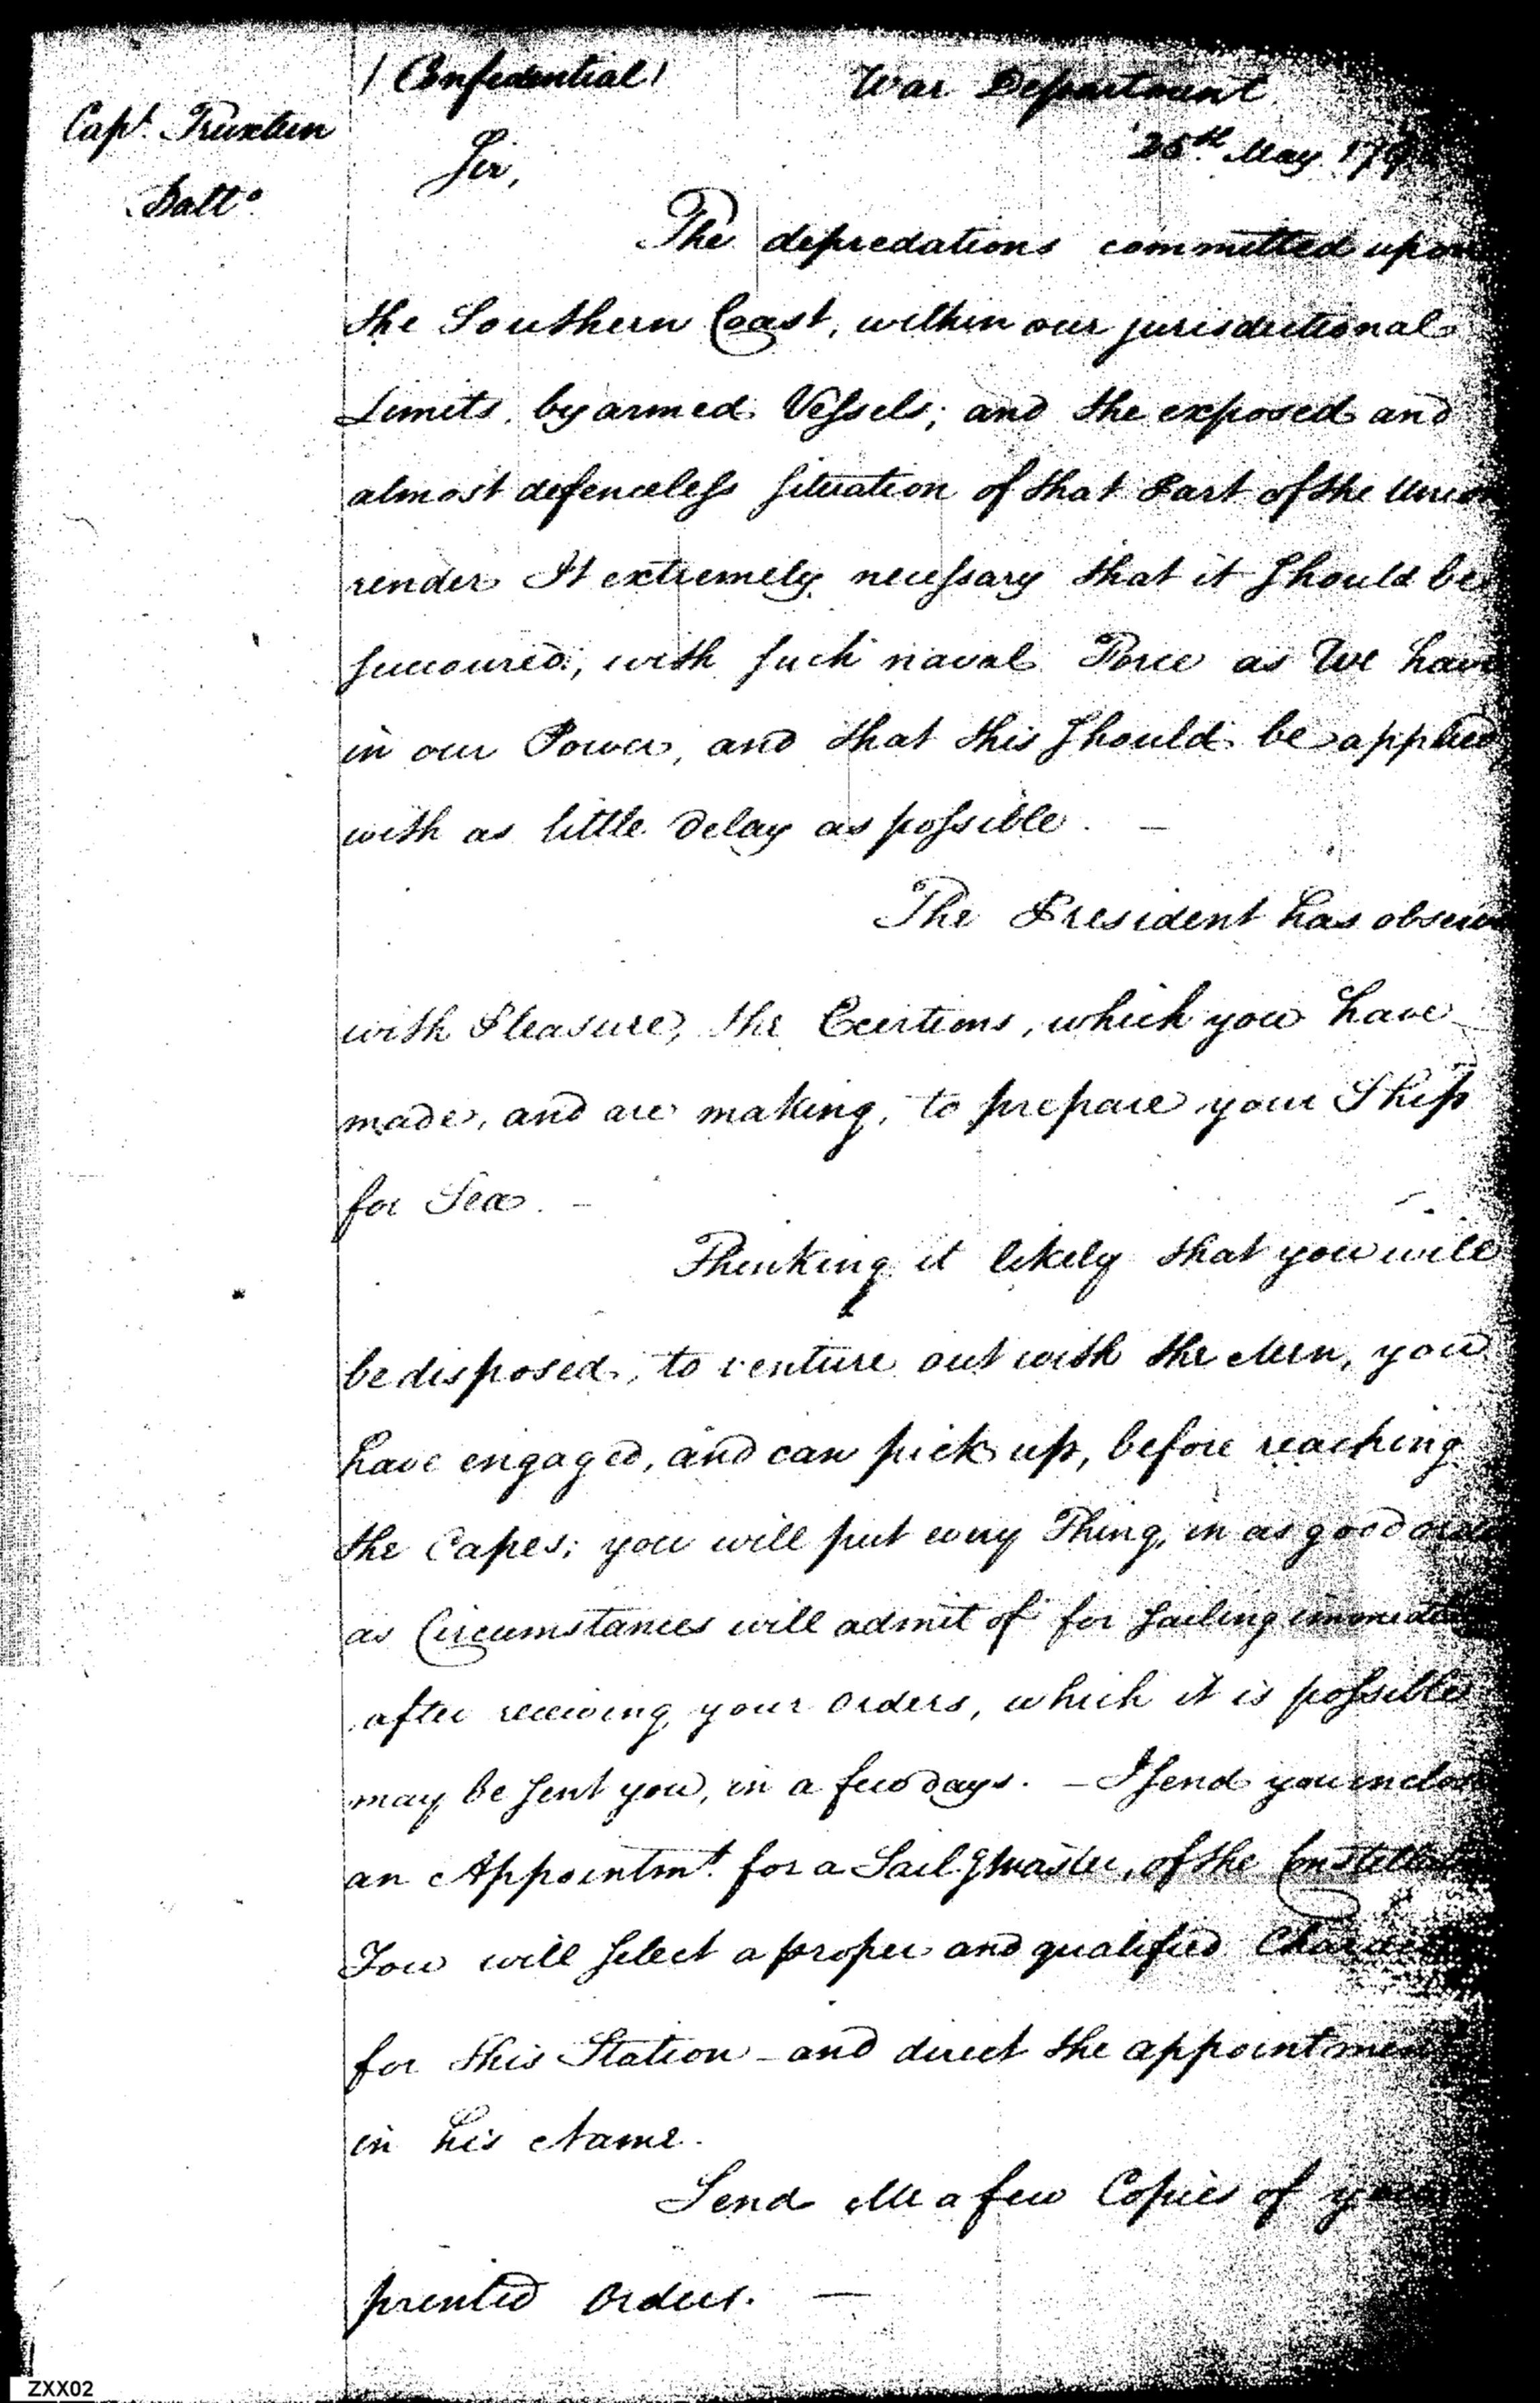 (Confidential)
War Department
25th May 179
Capt. Truxtun
Balto.
Sir,
The depredations committed upon
the Southern Coast, within our jurisdictional
Limits, by armed Vessels; and the exposed and
almost defenceless situation of that Part of the Union
render It extremely necessary that it should be
succoured, with such naval Force as We have
in our Power, and that this should be applied
with as little delay as possible. —
The President has observ
with Pleasure, the Exertions, which you have
made, and are making, to prepare your Ship
for Sea. —
Thinking it likely that you will
be disposed, to venture out with the Men, you
have engaged, and can pick up, before reaching
the Capes; you will put every Thing, in as good order
as Circumstances will admit of for sailing immediate
after receiving your orders, which it is possible
may be sent you, in a few days. — I send you inclos
an Appointmt. for a Sailg Master, of the Constellat
You will select a proper and qualified Charac
for this Station — and direct the appointment
in his Name.
Send Me a few Copies of your
printed Orders. —
ZXX02